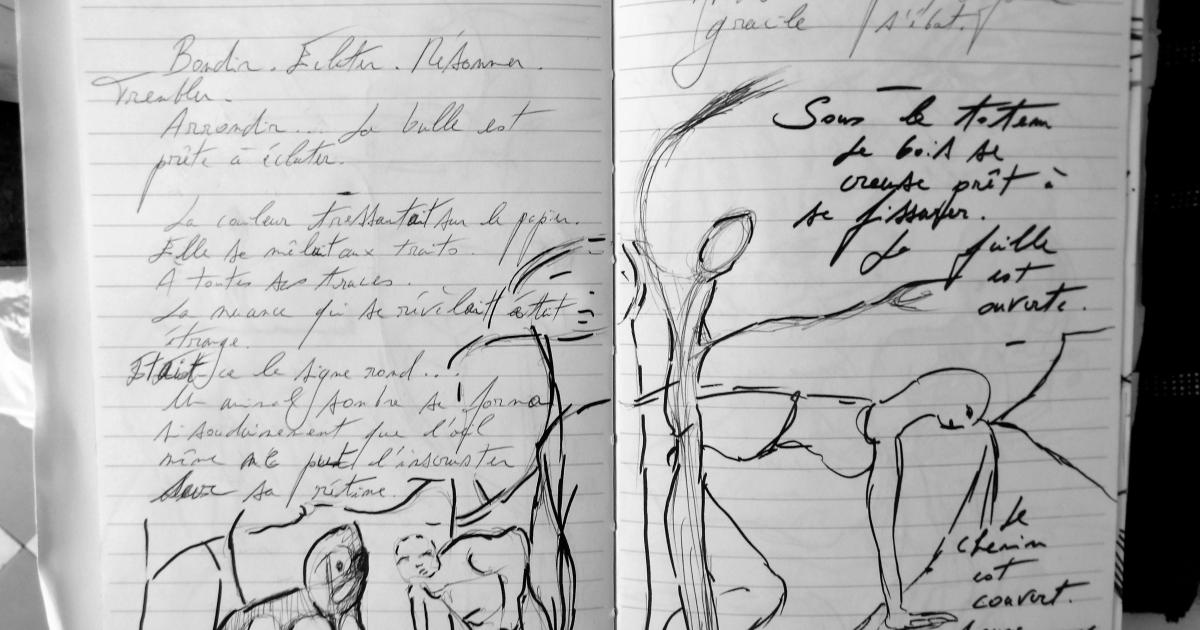 Bondir. Éclater. Résonner.
Trembler.
Arrondir... La bulle est
prête à éclater.
La couleur tressautait sur le papier.
Elle se mêlait aux traits.
A toutes ses traces.
La nuance qui se révélait était
étrange.
Etait ce le signe rond...
Un animal sombre se forma
si soudainement que l'œil
même ne put l'incruster
sur sa rétine.
gracile s'ébat.
Sous le totem
Le bois se
creuse prêt à
se fissurer.
La faille
est
ouverte.
Le
chemin
est
couvert.